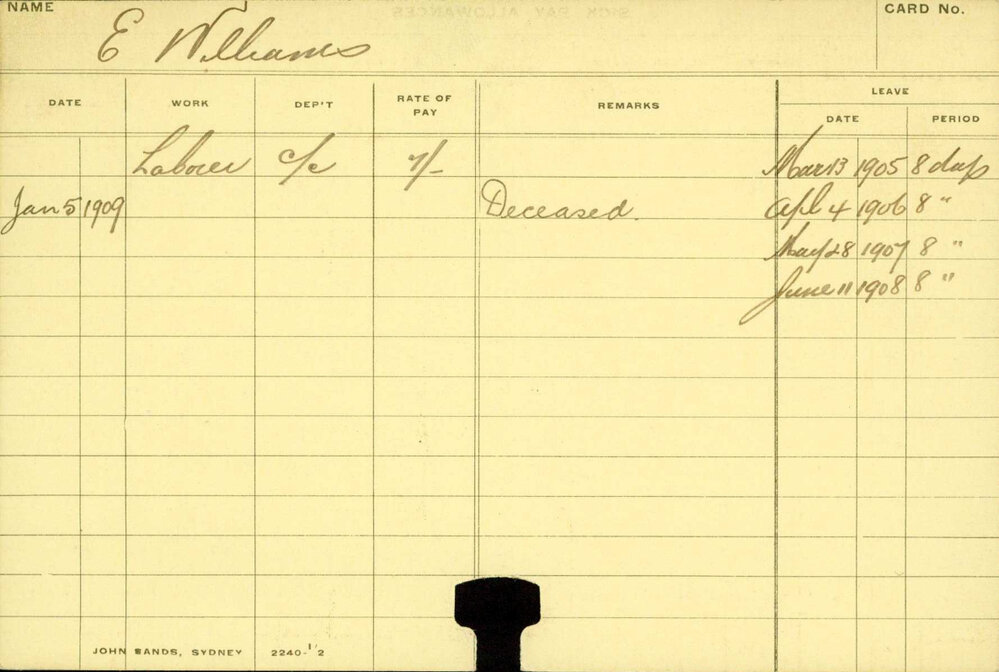 NAME E Williams CARD No.
LEAVE
DATE WORK DEP'T RATE OF PAY REMARKS DATE PERIOD
Laborer c/c 7/- Mar 13 1905 8 days
Jan 5 1909 Deceased. Apl 4 1906 8 "
May 28 1907 8 "
June 11 1908 8 "
JOHN SANDS, SYDNEY 2240-1/2